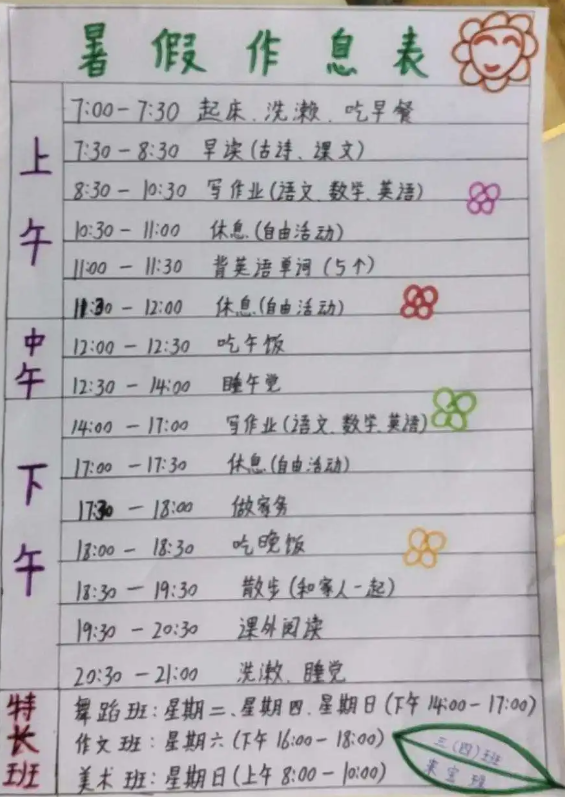 暑假作息表
上午
7:00-7:30 起床、洗漱、吃早餐
7:30-8:30 早读(古诗、课文)
8:30-10:30 写作业(语文、数学、英语)
10:30-11:00 休息(自由活动)
11:00-11:30 背英语单词(5个)
11:30-12:00 休息(自由活动)
中午
12:00-12:30 吃午饭
12:30-14:00 睡午觉
下午
14:00-17:00 写作业(语文、数学、英语)
17:00-17:30 休息(自由活动)
17:30-18:00 做家务
18:00-18:30 吃晚饭
18:30-19:30 散步(和家人一起)
19:30-20:30 课外阅读
20:30-21:00 洗漱、睡觉
特长班
舞蹈班:星期二、星期四、星期日(下午14:00-17:00)
作文班:星期六(下午16:00-18:00)
美术班:星期日(上午8:00-10:00)
三(四)班